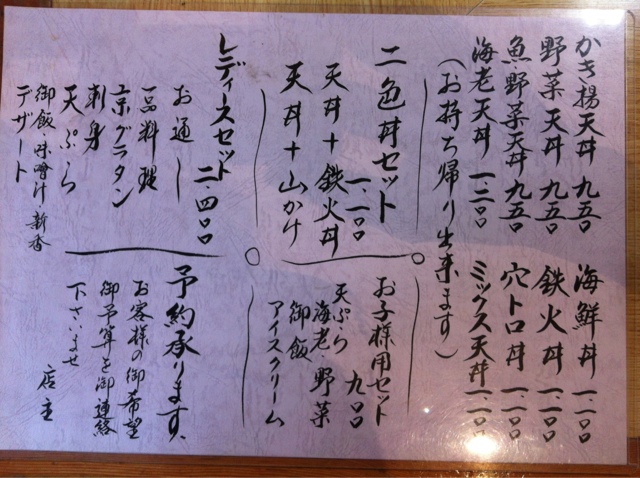 かき揚天丼 九五〇
野菜天丼 九五〇
魚・野菜天丼 九五〇
海老天丼 一、一〇〇
海鮮丼 一、一〇〇
鉄火丼 一、一〇〇
穴トロ丼 一、一〇〇
ミックス天丼 一、一〇〇
(お持ち帰り出来ます)
二色丼セット
一、一〇〇
天丼+鉄火丼
天丼+山かけ
お子様用セット
九〇〇
天ぷら
海老・野菜
御飯
アイスクリーム
レディースセット
二、四〇〇
お通し
一品料理
京グラタン
刺身
天ぷら
御飯・味噌汁・新香
デザート
予約承ります、
お客様の御希望
御予算を御連絡
下さいませ
店主